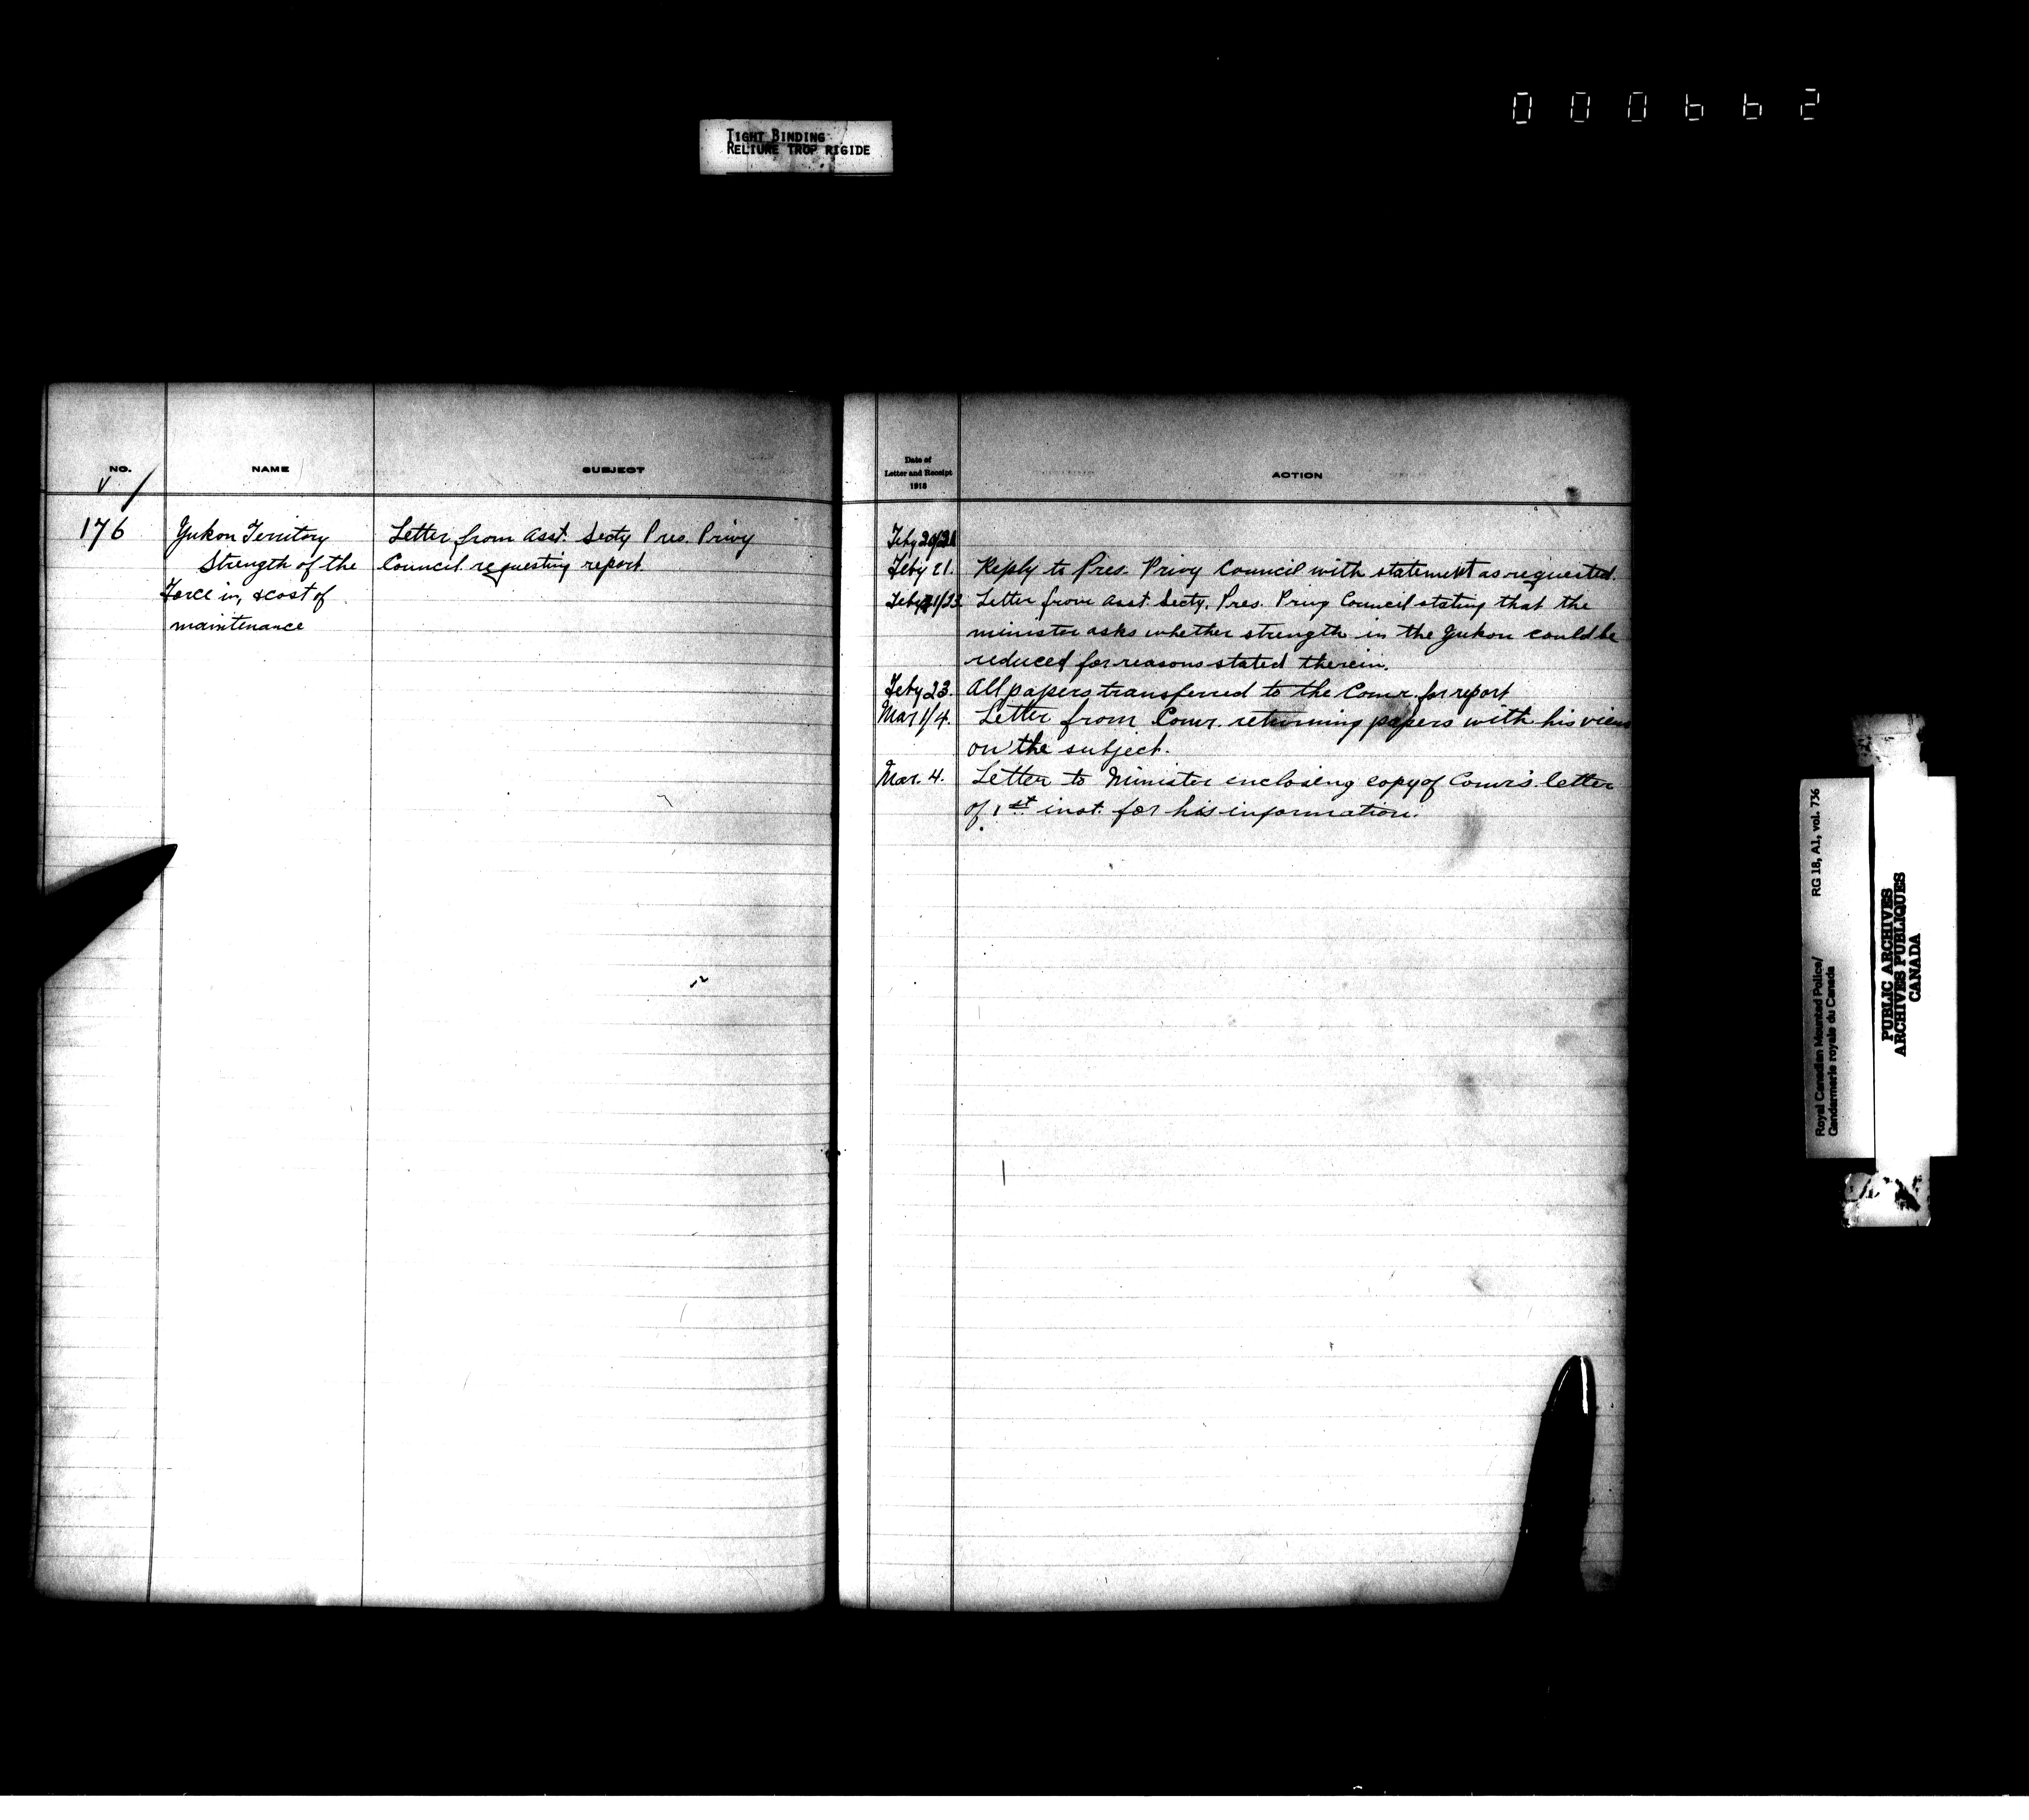 000662
TIGHT BINDING
RELIURE TROP RIGIDE
NO.
NAME
SUBJECT
176
Yukon Territory
Strength of the
Force in, & cost of
maintenance
Letter from Asst. Secty Pres. Privy
Council requesting report.
Date of
Letter and Receipt
1918
ACTION
Feby 20/21
Feby 21. Reply to Pres. Privy Council with statement as requested.
Feby 21/23 Letter from Asst. Secty. Pres. Privy Council stating that the
minister asks whether strength in the Yukon could be
reduced for reasons stated therein.
Feby 23. All papers transferred to the Comr. for report
Mar 1/4. Letter from Comr. returning papers with his views
on the subject.
Mar. 4. Letter to Minister enclosing copy of Comr's. letter
of 1st inst. for his information.
Royal Canadian Mounted Police/ RG 18, A1, vol. 736
Gendarmerie royale du Canada
PUBLIC ARCHIVES
ARCHIVES PUBLIQUES
CANADA